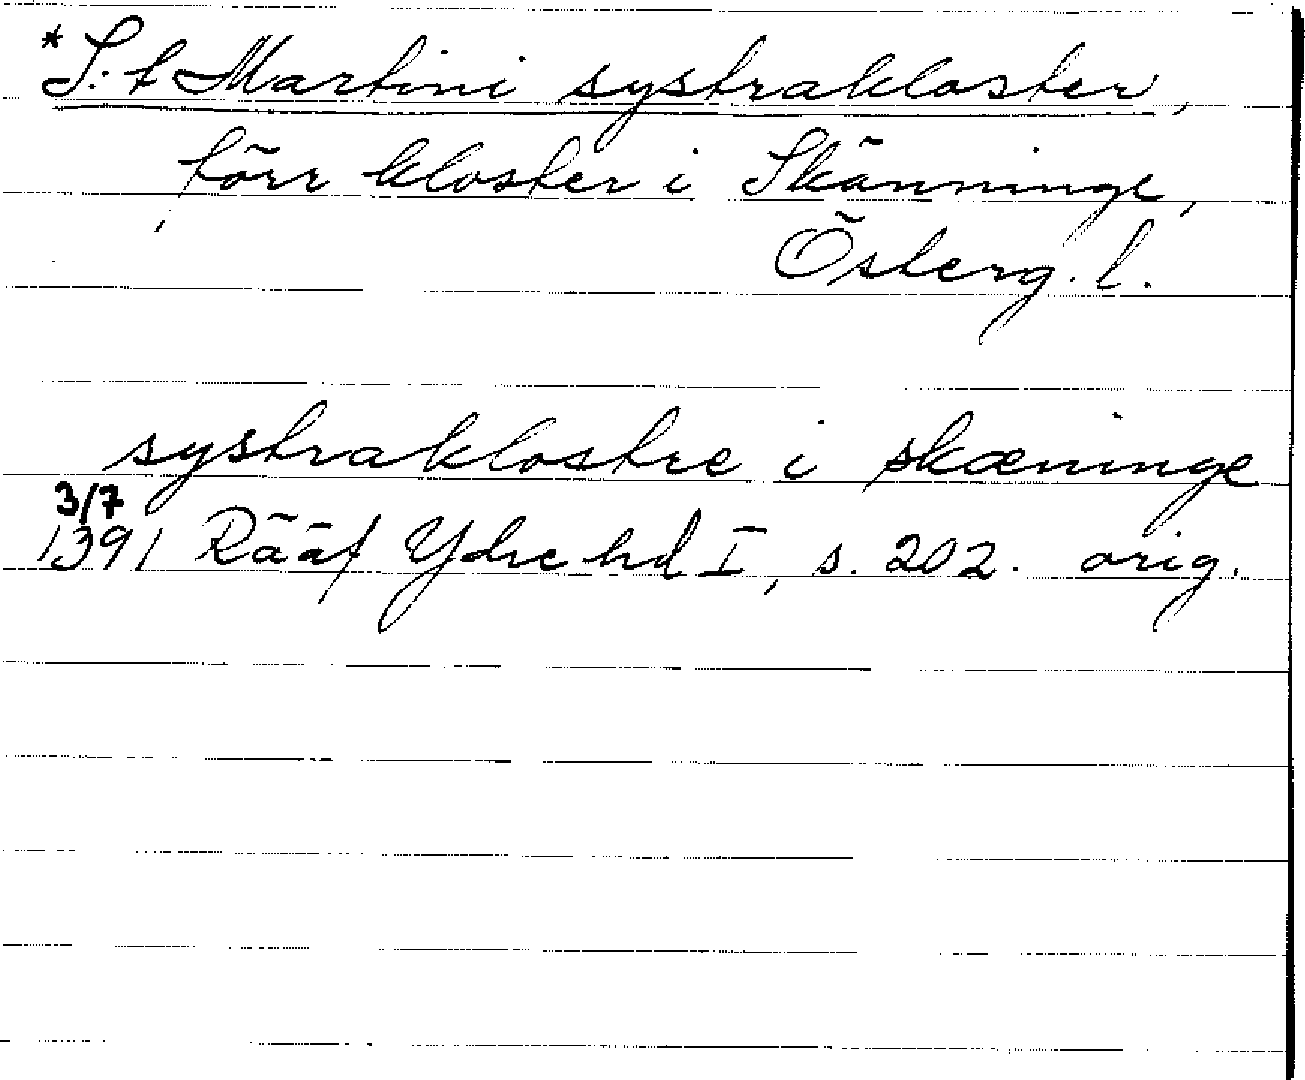 *S:t Martini systrakloster,
förr kloster i Skänninge,
Österg. l.
systraklostre i skæninge
3/7
1391 Rääf Ydre hd I, s. 202. orig.